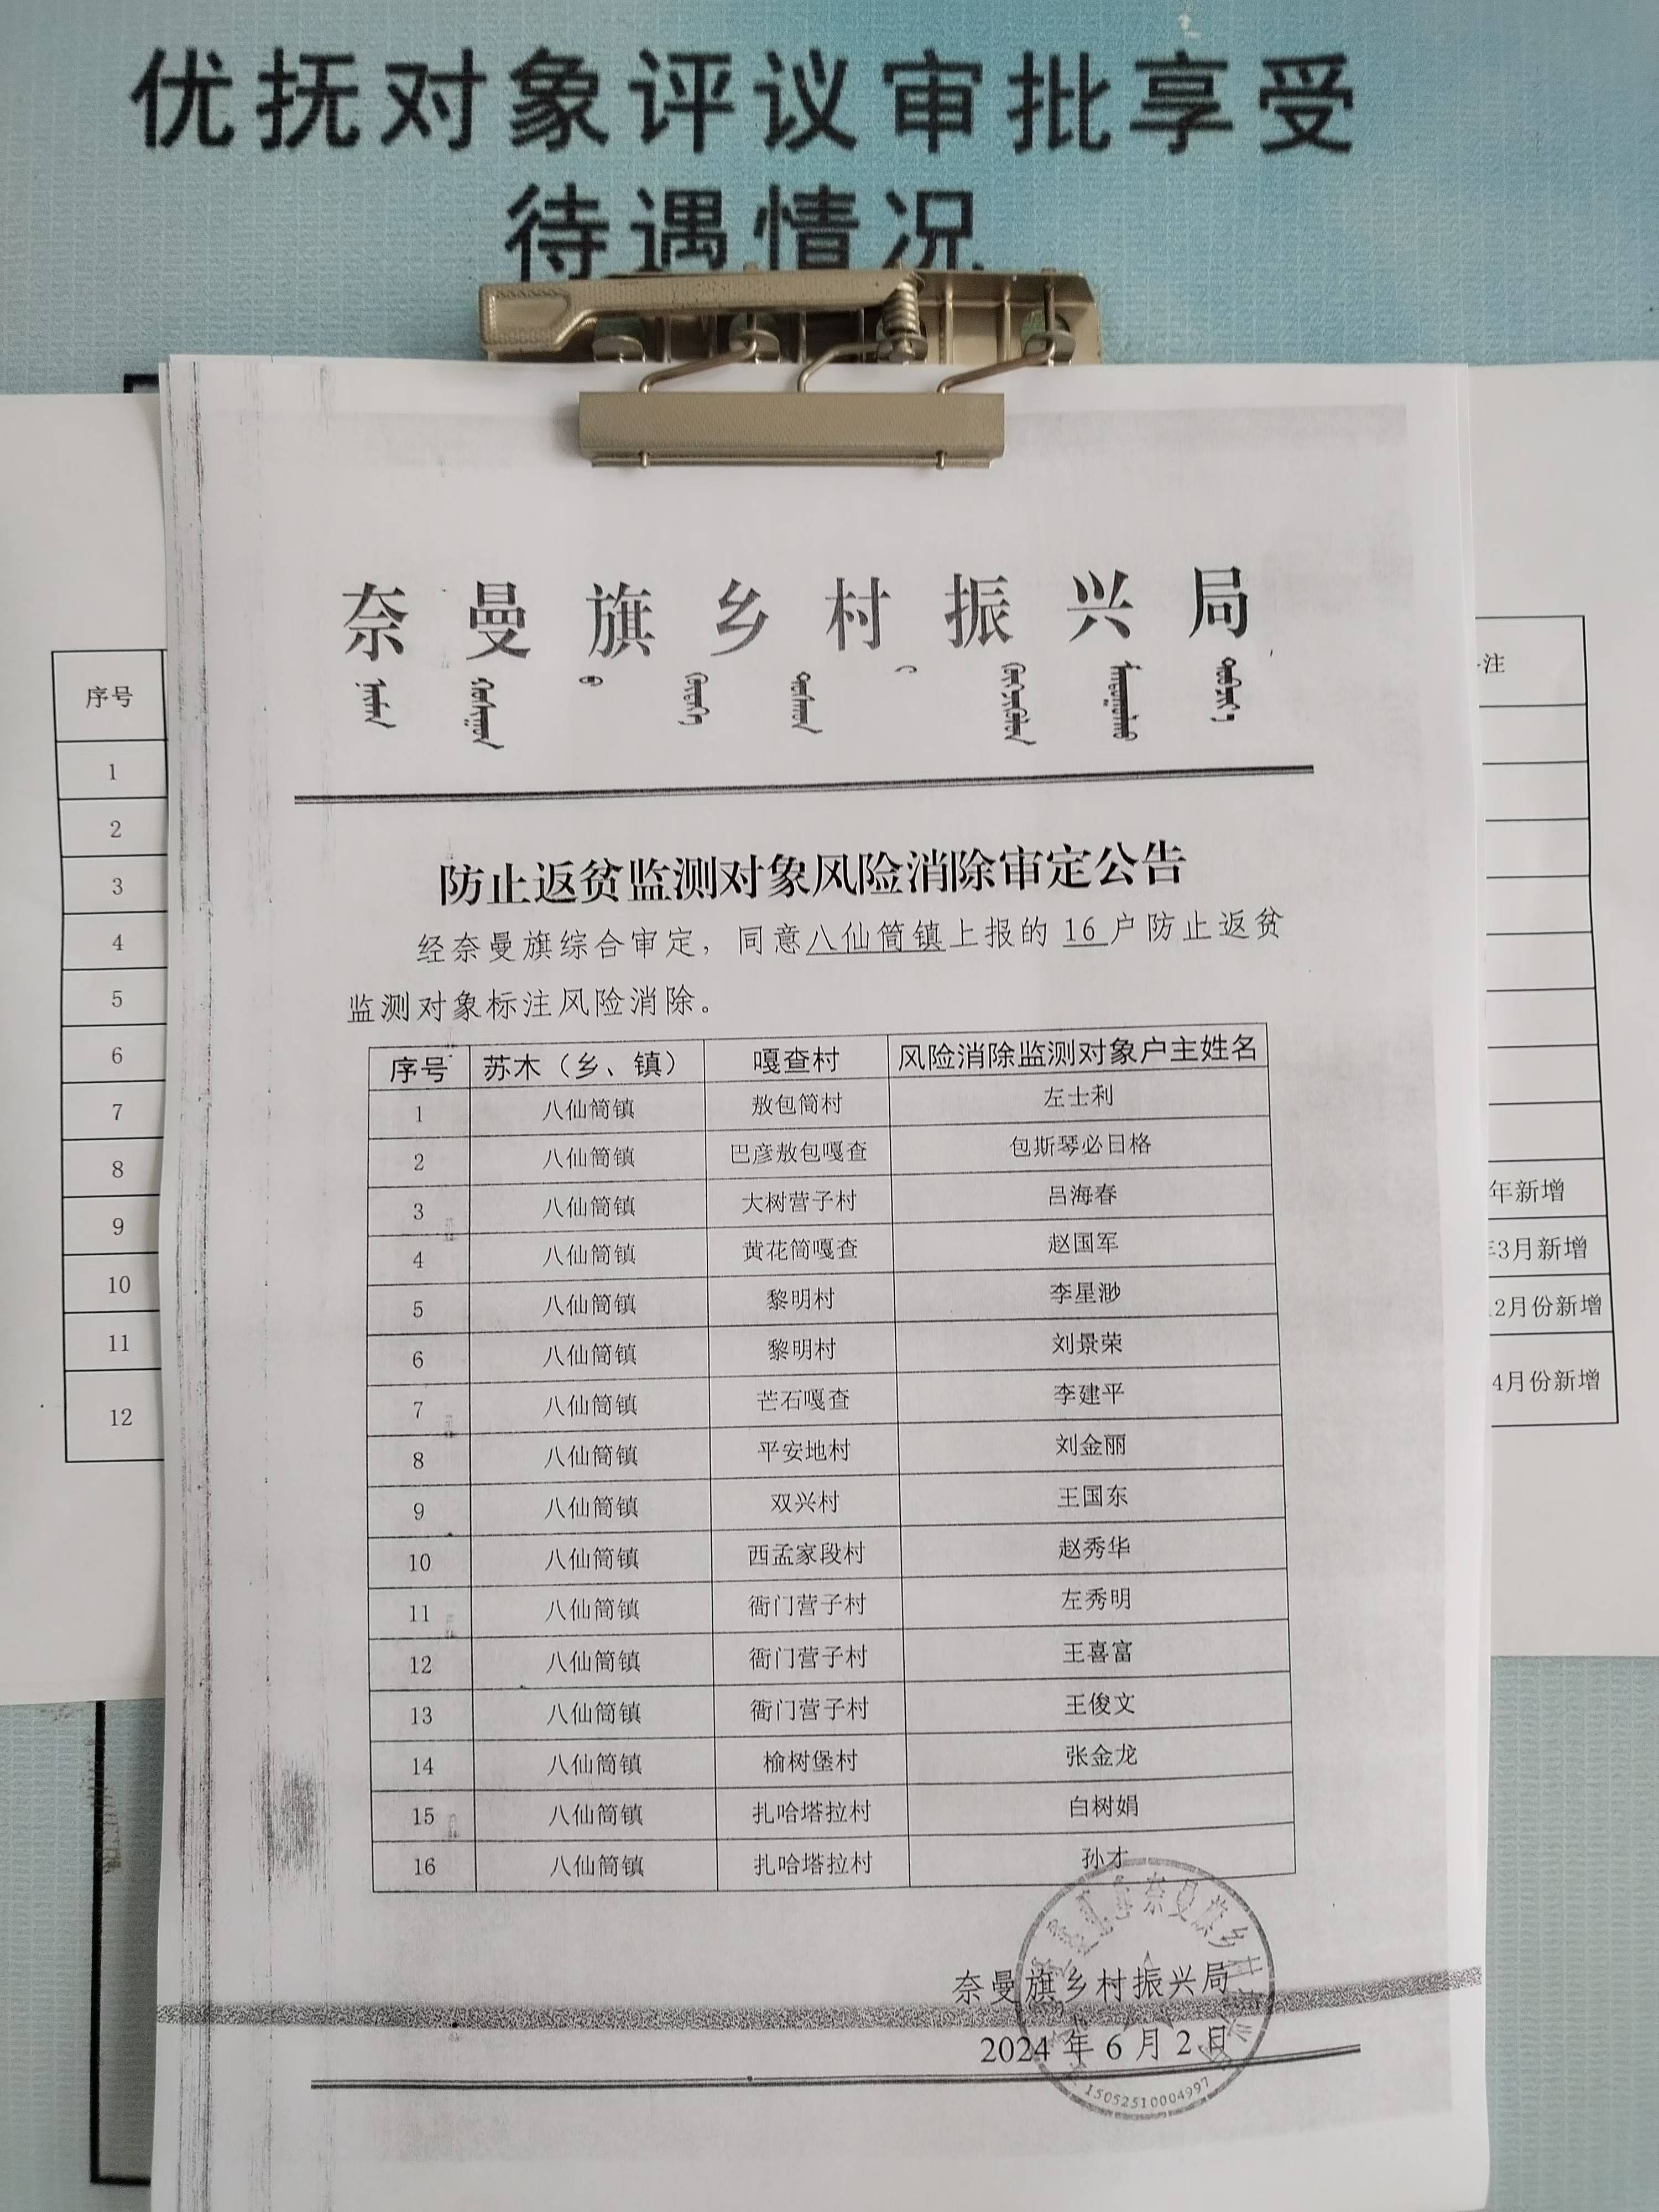 优抚对象评议审批享受
待遇情况
奈曼旗乡村振兴局
防止返贫监测对象风险消除审定公告
经奈曼旗综合审定，同意八仙筒镇上报的 16 户防止返贫
监测对象标注风险消除。
序号 苏木（乡、镇） 嘎查村 风险消除监测对象户主姓名
1 八仙筒镇 敖包筒村 左士利
2 八仙筒镇 巴彦敖包嘎查 包斯琴必日格
3 八仙筒镇 大树营子村 吕海春
4 八仙筒镇 黄花筒嘎查 赵国军
5 八仙筒镇 黎明村 李星渺
6 八仙筒镇 黎明村 刘景荣
7 八仙筒镇 芒石嘎查 李建平
8 八仙筒镇 平安地村 刘金丽
9 八仙筒镇 双兴村 王国东
10 八仙筒镇 西孟家段村 赵秀华
11 八仙筒镇 衙门营子村 左秀明
12 八仙筒镇 衙门营子村 王喜富
13 八仙筒镇 衙门营子村 王俊文
14 八仙筒镇 榆树堡村 张金龙
15 八仙筒镇 扎哈塔拉村 白树娟
16 八仙筒镇 扎哈塔拉村 孙才
奈曼旗乡村振兴局
2024 年 6 月 2 日
15052510004997
序号
1
2
3
4
5
6
7
8
9
10
11
12
注
年新增
3月新增
2月份新增
4月份新增